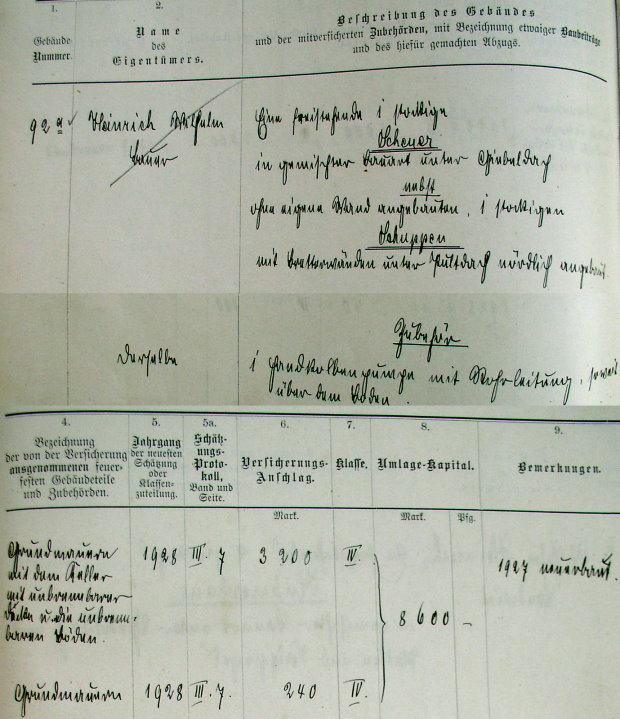 1.
Gebäude
Nummer.
2.
Name
des
Eigentümers.
Beschreibung des Gebäudes
und der mitversicherten Zubehörden, mit Bezeichnung etwaiger Baubeiträge
und des hiefür gemachten Abzugs.
92 a
Heinrich Wilhelm
Bauer
Eine freistehende 1 stockige
Scheuer
in gemischter Bauart unter Giebeldach
nebst
ohne eigene Wand angebauten, 1 stockigen
Schuppen
mit Bretterwänden unter Pultdach nördlich angebaut.
Zubehör
Derselbe
1 Handkolbenpumpe mit Rohrleitung, soweit
über dem Boden
4.
Bezeichnung
der von der Versicherung
ausgenommenen feuer-
festen Gebäudeteile
und Zubehörden.
5.
Jahrgang
der neuesten
Schätzung
oder
Klassen-
zuteilung.
5a.
Schätz-
ungs-
Proto-
koll,
Band und
Seite.
6.
Versicherungs-
Anschlag.
Mark.
7.
Klasse.
8.
Umlage-Kapital.
Mark.
Pfg.
9.
Bemerkungen.
Grundmauern
mit dem Keller
mit unbrennbarer
Decke u. die unbrenn-
baren Böden.
1928
III. 7
3 200
IV.
8 600 –
1927 neuerbaut.
Grundmauern
1928
III. 7.
240
IV.